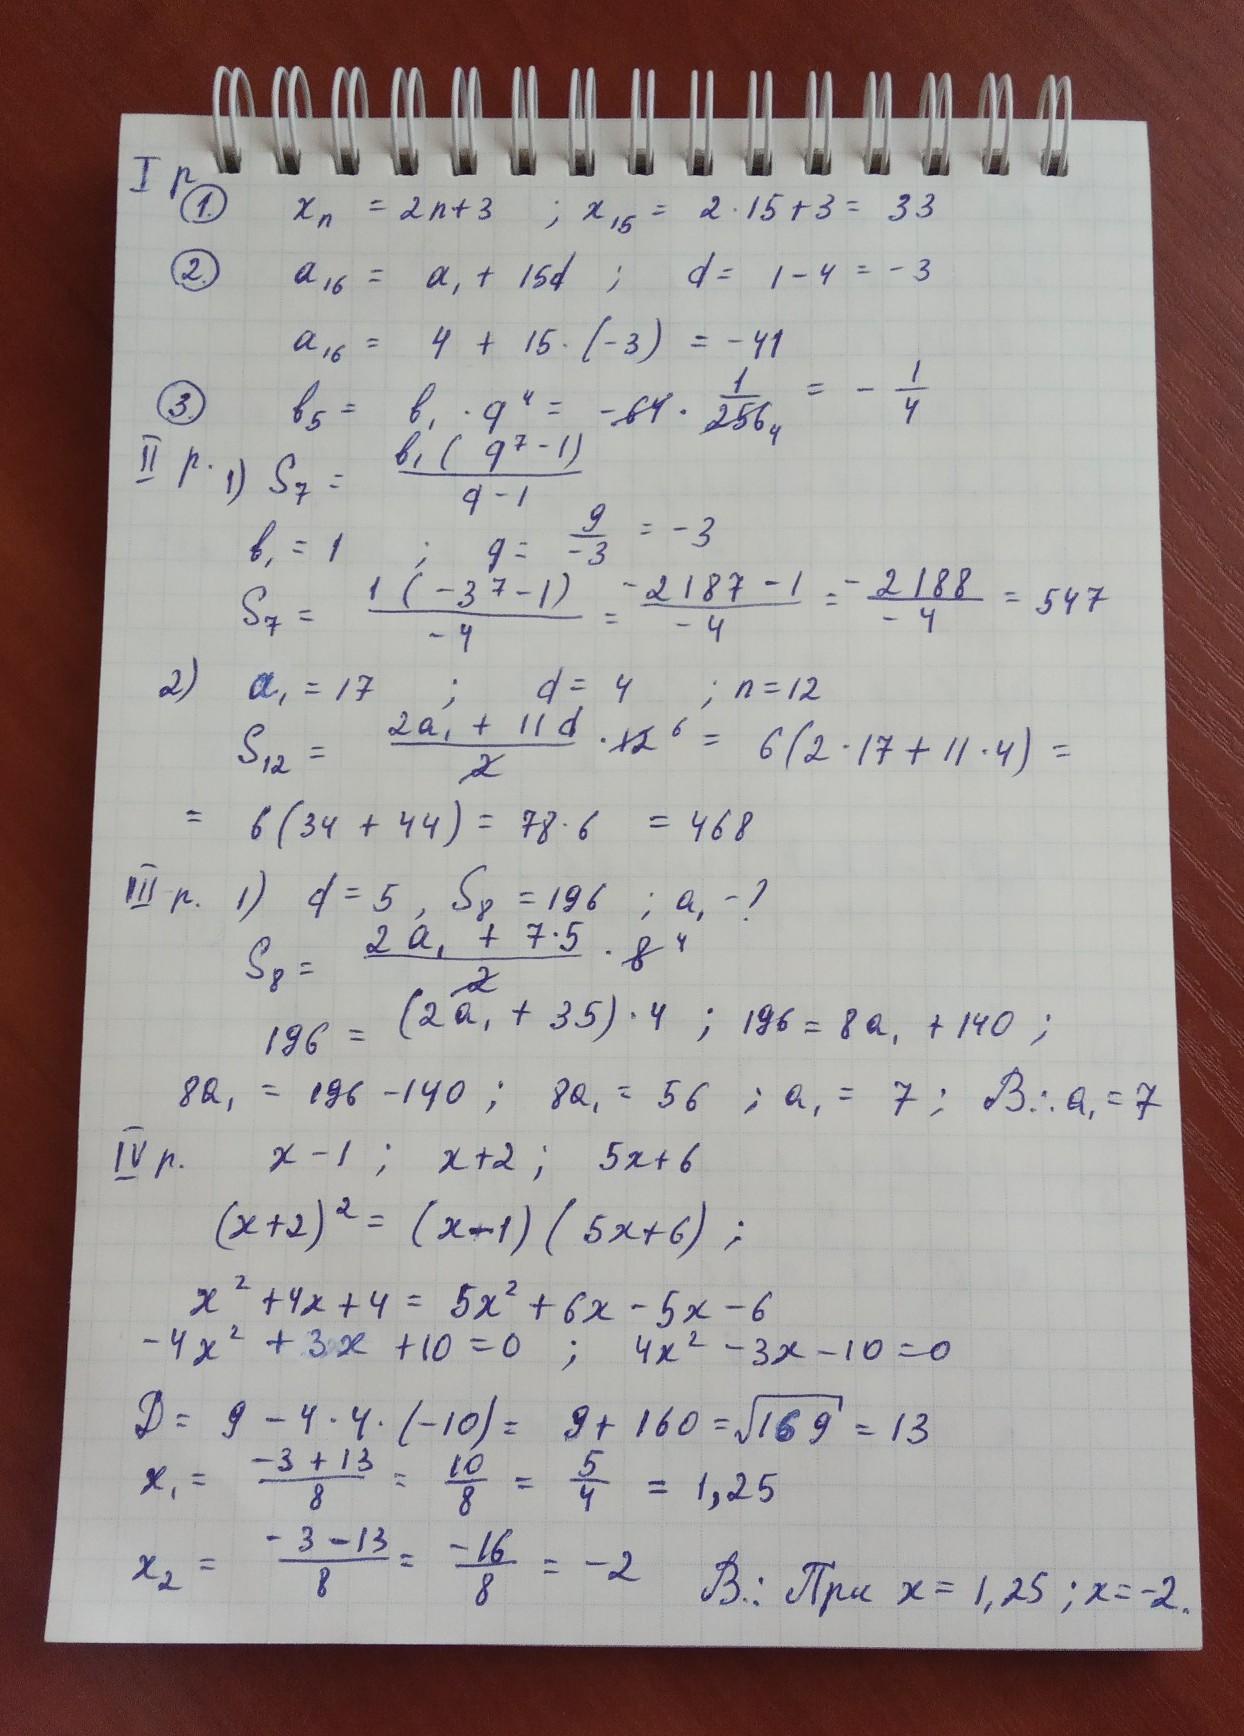 I р
1. xₙ = 2n+3 ; x₁₅ = 2·15+3 = 33
2. a₁₆ = a₁ + 15d ; d = 1-4 = -3
a₁₆ = 4 + 15·(-3) = -41
3. b₅ = b₁ · q⁴ = -64 · 1/256 4 = - 1/4
II р. 1) S₇ = b₁(q⁷-1)/q-1
b₁ = 1 ; q = 9/-3 = -3
S₇ = 1(-3⁷-1)/-4 = -2187-1/-4 = -2188/-4 = 547
2) a₁ = 17 ; d = 4 ; n = 12
S₁₂ = 2a₁ + 11d/2 · 12 6 = 6(2·17+11·4) =
= 6(34 + 44) = 78·6 = 468
III р. 1) d = 5, S₈ = 196 ; a₁ - ?
S₈ = 2a₁ + 7·5/2 · 8 4
196 = (2a₁ + 35)·4 ; 196 = 8a₁ + 140 ;
8a₁ = 196 - 140 ; 8a₁ = 56 ; a₁ = 7 ; В.: a₁ = 7
IV р. x-1 ; x+2 ; 5x+6
(x+2)² = (x-1)(5x+6) ;
x² + 4x + 4 = 5x² + 6x - 5x - 6
-4x² + 3x + 10 = 0 ; 4x² - 3x - 10 = 0
D = 9 - 4·4·(-10) = 9 + 160 = √169 = 13
x₁ = -3+13/8 = 10/8 = 5/4 = 1,25
x₂ = -3-13/8 = -16/8 = -2 В.: При x = 1,25 ; x = -2.